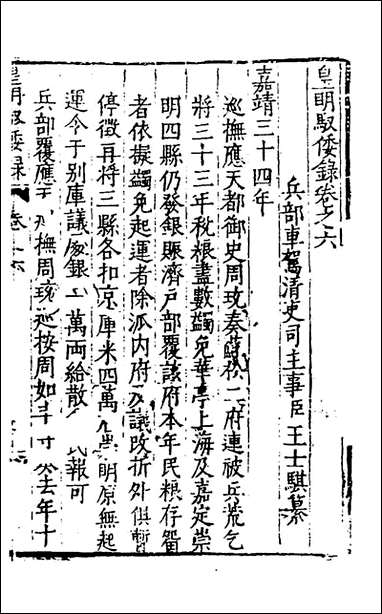 皇明馭倭錄卷之六
兵部車駕清吏司主事臣王士騏纂
嘉靖三十四年
巡撫應天都御史周珫奏蘇松二府連被兵荒乞
將三十三年稅粮盡數蠲免華亭上海及嘉定崇
明四縣仍發銀賑濟戶部覆該府本年民粮存留
者依擬蠲免起運者除派内府及議改折外俱暫
停徵再將三縣各扣京庫米四萬 崇明原無起
運今于别庫議處銀二萬兩給散 報可
兵部覆應天巡撫周珫巡按周如斗 去年十
皇明馭倭錄 卷之六